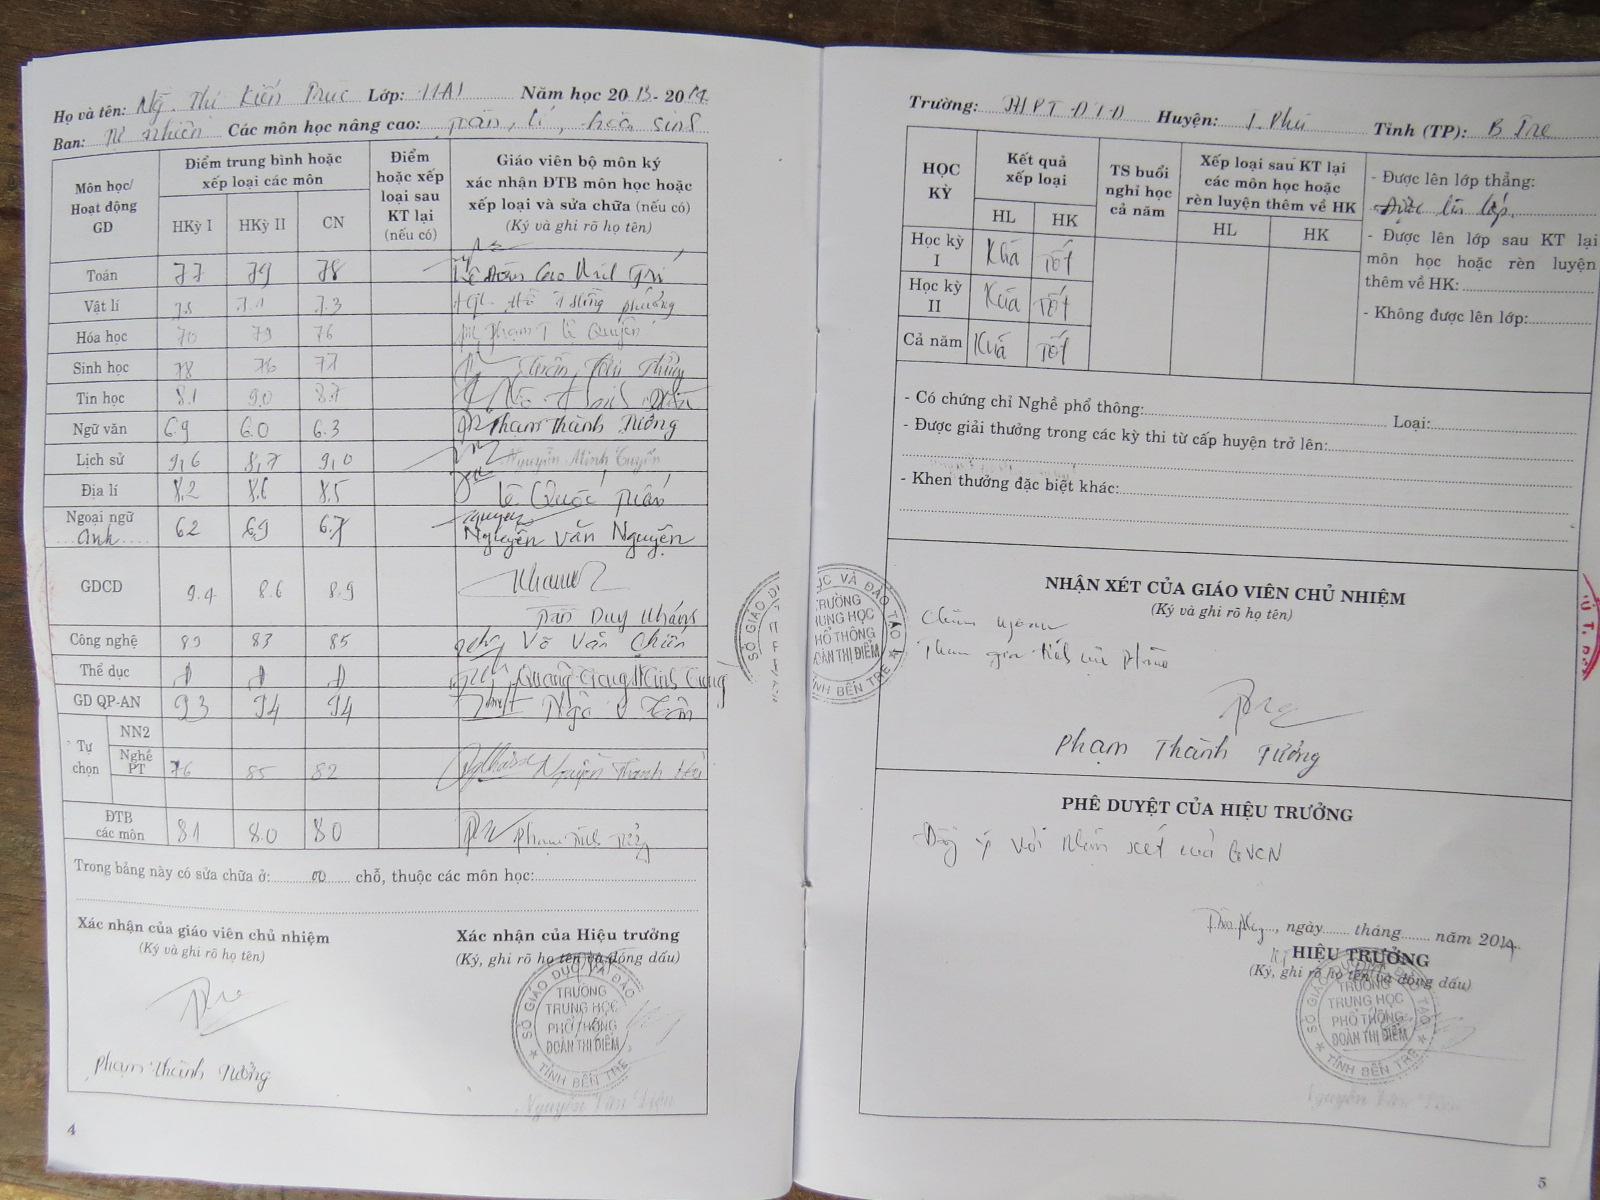 Họ và tên: Ng. Thị Kiến Trúc Lớp: 11A1 Năm học 2013 - 2014
Ban: Tự nhiên Các môn học nâng cao: Toán, lí, hóa sinh
Môn học/ Hoạt động GD
Điểm trung bình hoặc xếp loại các môn
HKỳ I HKỳ II CN
Điểm hoặc xếp loại sau KT lại (nếu có)
Giáo viên bộ môn ký xác nhận ĐTB môn học hoặc xếp loại và sửa chữa (nếu có)
(Ký và ghi rõ họ tên)
Toán 77 79 78
Vật lí 7.3
Hóa học 70 79 76
Sinh học 78 76 77
Tin học 8.1 9.0 8.7
Ngữ văn 6.9 6.0 6.3 Phạm Thành Tưởng
Lịch sử 9,6 8,7 9,0 Nguyễn Minh
Địa lí 8.2 8.6 8.5 Lê Quốc Tuấn
Ngoại ngữ Anh 62 6.9 6.7 Nguyễn Văn Nguyện
GDCD 9.4 8.6 8.9 Trần Duy
Công nghệ 89 83 85 Võ Văn Chiến
Thể dục Đ Đ Đ
GD QP-AN 93 94 94
Tự chọn
NN2
Nghề PT 76 85 82 Nguyễn Thanh
ĐTB các môn 81 8.0 8.0
Trong bảng này có sửa chữa ở: 00 chỗ, thuộc các môn học:
Xác nhận của giáo viên chủ nhiệm
(Ký và ghi rõ họ tên)
Phạm Thành Tưởng
Xác nhận của Hiệu trưởng
(Ký, ghi rõ họ tên và đóng dấu)
SỞ GIÁO DỤC VÀ ĐÀO TẠO
TRƯỜNG
TRUNG HỌC
PHỔ THÔNG
ĐOÀN THỊ ĐIỂM
TỈNH BẾN TRE
Nguyễn Văn
4
Trường: THPT ĐTĐ Huyện: T. Phú Tỉnh (TP): B Tre
HỌC KỲ
Kết quả xếp loại
HL HK
TS buổi nghỉ học cả năm
Xếp loại sau KT lại các môn học hoặc rèn luyện thêm về HK
HL HK
Học kỳ I Khá Tốt
Học kỳ II Khá Tốt
Cả năm Khá Tốt
- Được lên lớp thẳng:
Được lên lớp.
- Được lên lớp sau KT lại môn học hoặc rèn luyện thêm về HK:
- Không được lên lớp:
- Có chứng chỉ Nghề phổ thông: Loại:
- Được giải thưởng trong các kỳ thi từ cấp huyện trở lên:
- Khen thưởng đặc biệt khác:
NHẬN XÉT CỦA GIÁO VIÊN CHỦ NHIỆM
(Ký và ghi rõ họ tên)
Chăm ngoan
Tham gia
Phạm Thành Tưởng
PHÊ DUYỆT CỦA HIỆU TRƯỞNG
Đồng ý với nhận xét của GVCN
ngày tháng năm 2014
HIỆU TRƯỞNG
(Ký, ghi rõ họ tên và đóng dấu)
SỞ GIÁO DỤC VÀ ĐÀO TẠO
TRƯỜNG
TRUNG HỌC
PHỔ THÔNG
ĐOÀN THỊ ĐIỂM
TỈNH BẾN TRE
Nguyễn Văn
5